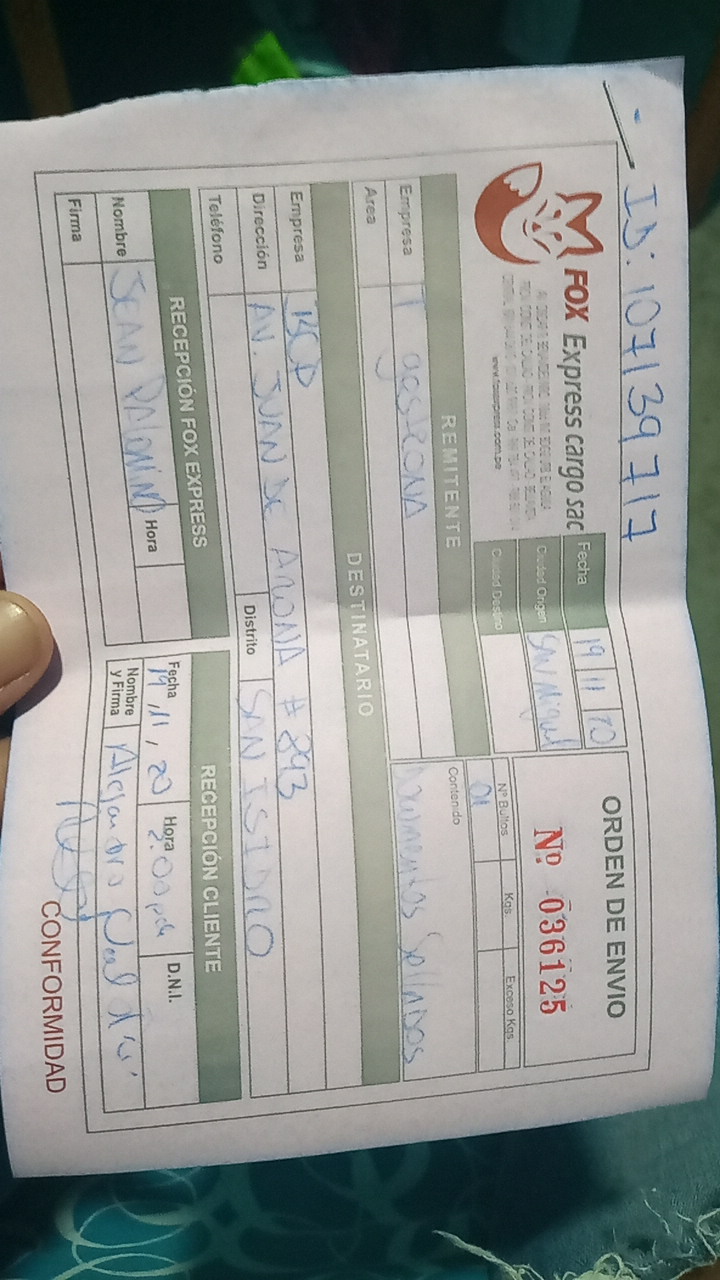 - ID: 107139717
FOX Express cargo sac
www.foxexpress.com.pe
Fecha 19 11 20
Ciudad Origen San Miguel
Ciudad Destino
ORDEN DE ENVIO
Nº 036125
Nº Bultos Kgs. Exceso Kgs.
01
REMITENTE
Empresa
Area
Contenido
Documentos Sellados
DESTINATARIO
Empresa BCP
Dirección AV. JUAN DE ARONA # 893
Distrito SAN ISIDRO
Teléfono
RECEPCIÓN FOX EXPRESS
Nombre JEAN PALOMINO
Hora
Firma
RECEPCIÓN CLIENTE
Fecha 19, 11, 20 Hora 2:00 pm D.N.I.
Nombre y Firma Alejandro
CONFORMIDAD